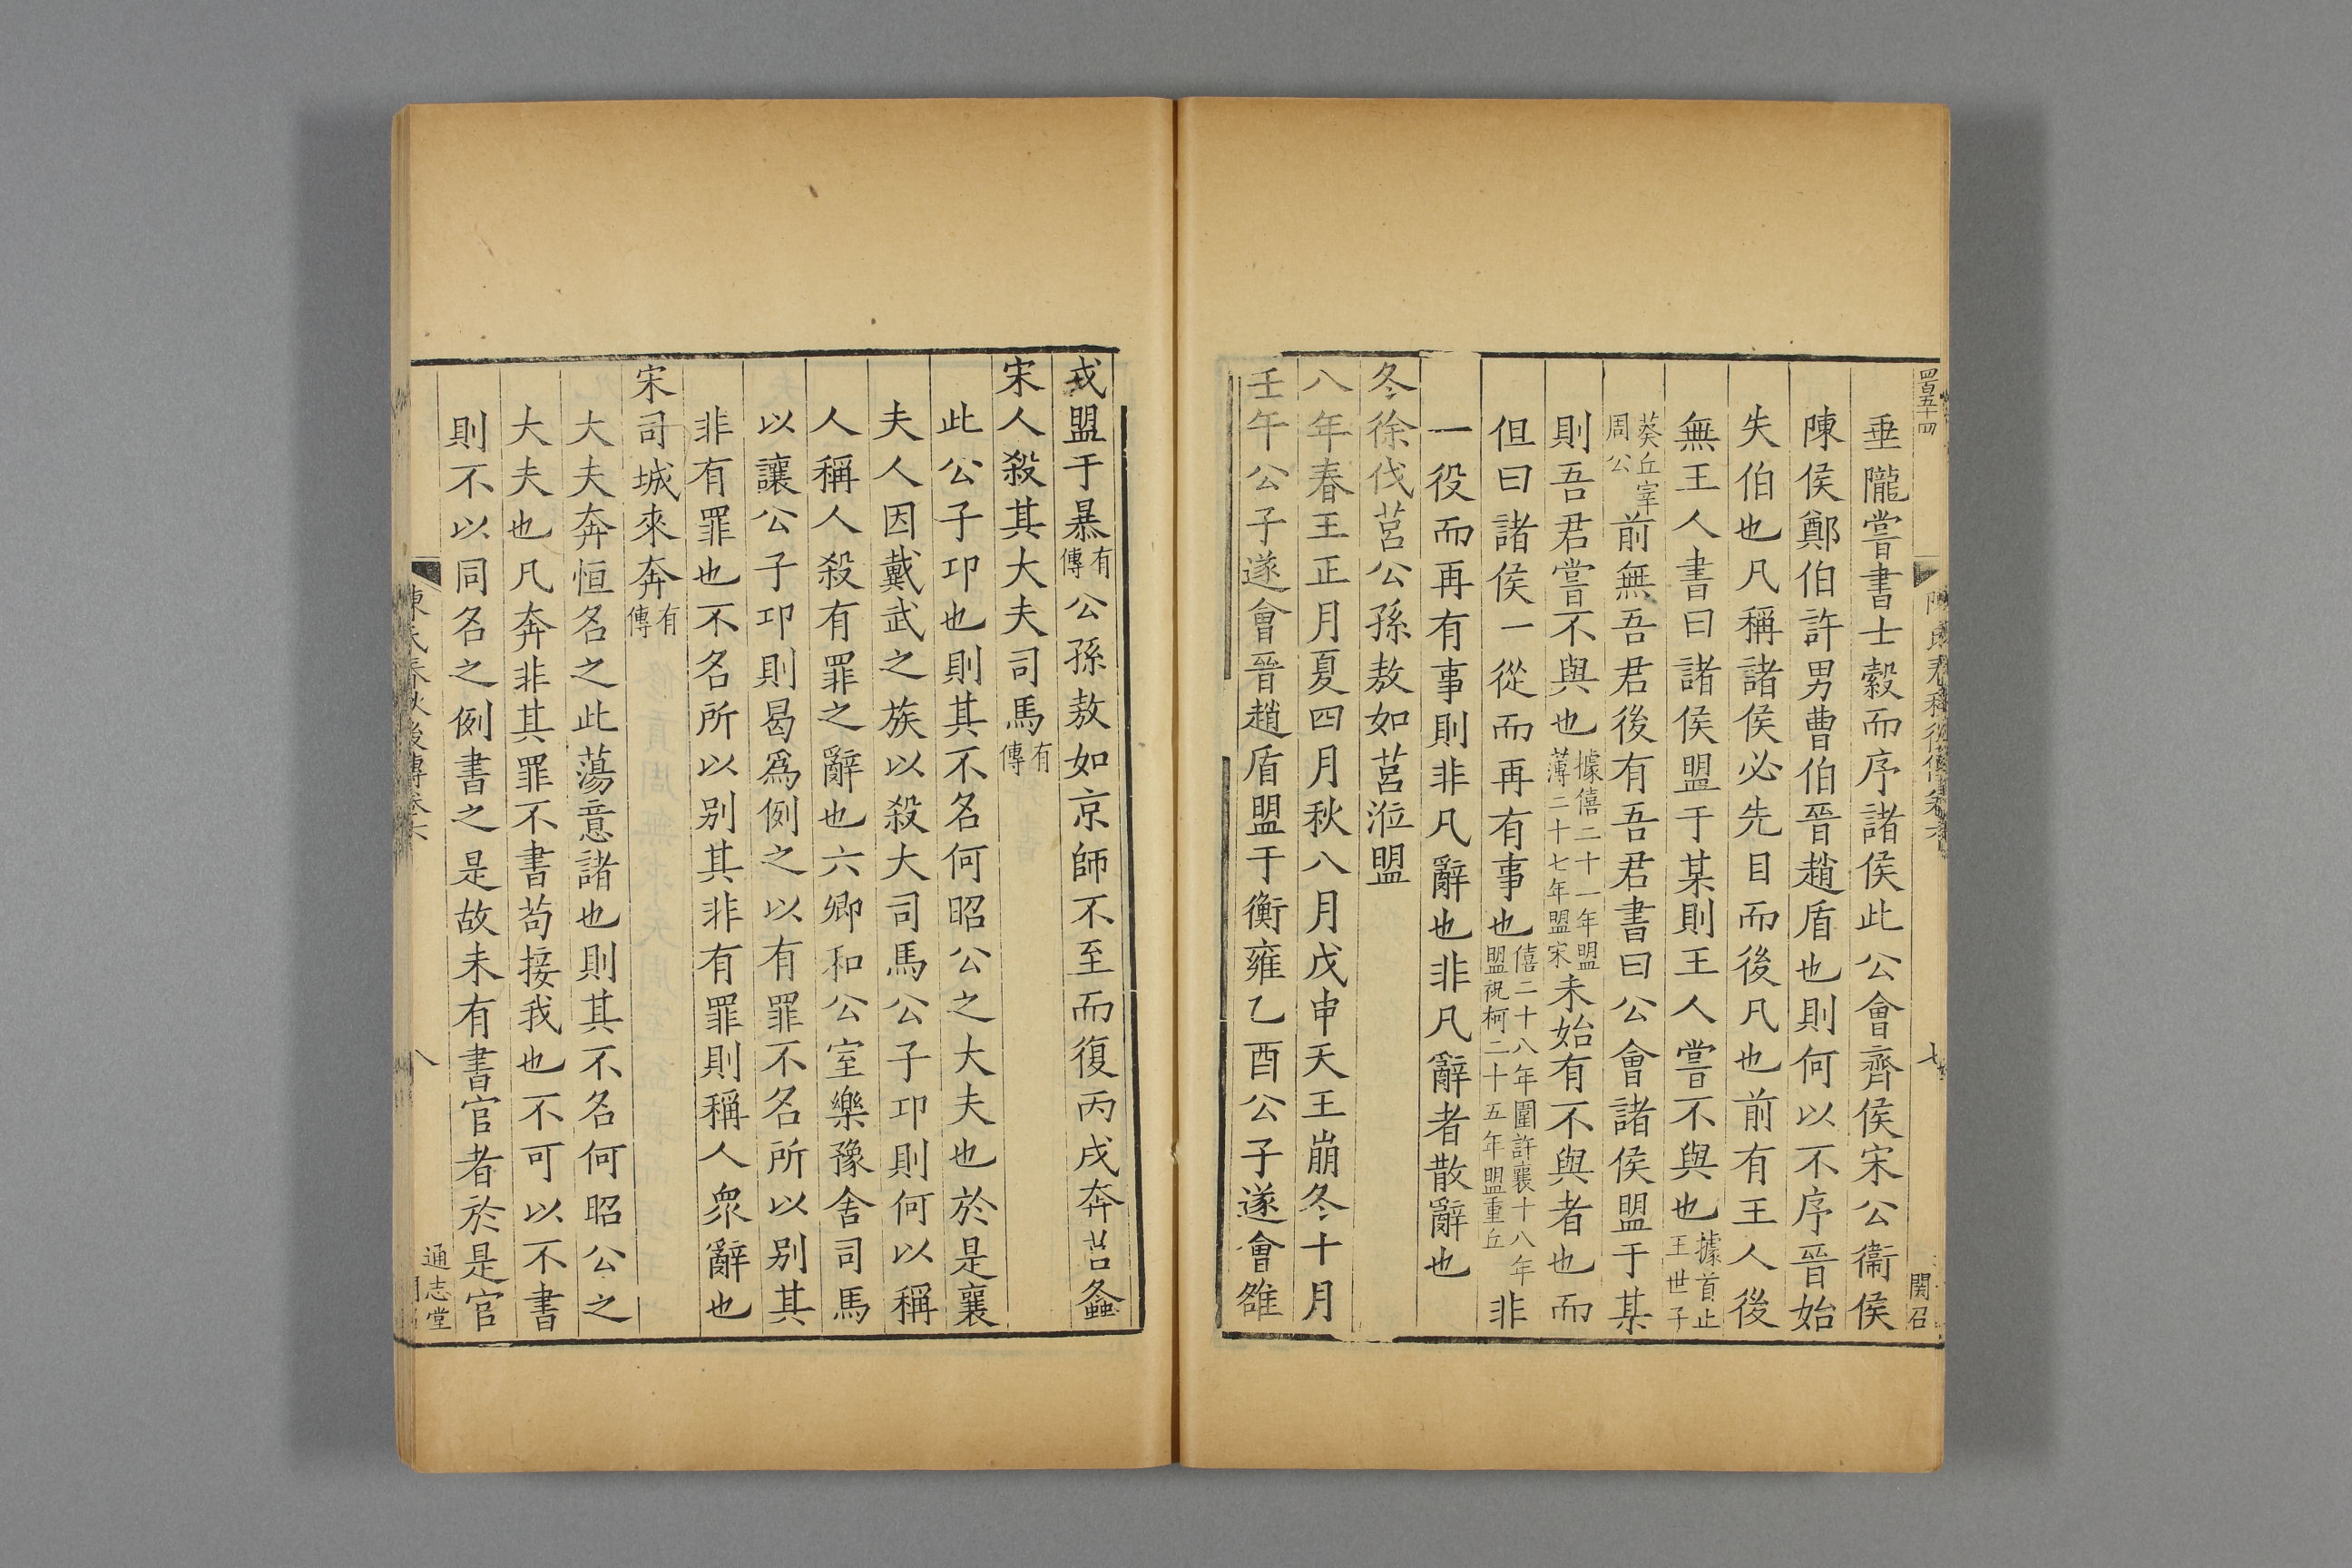 四百五十四
陳氏春秋後傳卷六
七
関召
垂隴嘗書士縠而序諸侯此公會齊侯宋公衞侯
陳侯鄭伯許男曹伯晉趙盾也則何以不序晉始
失伯也凡稱諸侯必先目而後凡也前有王人後
無王人書曰諸侯盟于某則王人嘗不與也據首止王世子
葵丘宰周公前無吾君後有吾君書曰公會諸侯盟于某
則吾君嘗不與也據僖二十一年盟薄二十七年盟宋未始有不與者也而
但曰諸侯一從而再有事也僖二十八年圍許襄十八年盟祝柯二十五年盟重丘非
一役而再有事則非凡辭也非凡辭者散辭也
冬徐伐莒公孫敖如莒涖盟
八年春王正月夏四月秋八月戊申天王崩冬十月
壬午公子遂會晉趙盾盟于衡雍乙酉公子遂會雒
戎盟于暴有傳公孫敖如京師不至而復丙戌奔莒螽
宋人殺其大夫司馬有傳
此公子卭也則其不名何昭公之大夫也於是襄
夫人因戴武之族以殺大司馬公子卭則何以稱
人稱人殺有罪之辭也六卿和公室樂豫舍司馬
以讓公子卭則曷爲例之以有罪不名所以别其
非有罪也不名所以别其非有罪則稱人衆辭也
宋司城來奔有傳
大夫奔恒名之此蕩意諸也則其不名何昭公之
大夫也凡奔非其罪不書苟接我也不可以不書
則不以同名之例書之是故未有書官者於是官
陳氏春秋後傳卷六
八
通志堂